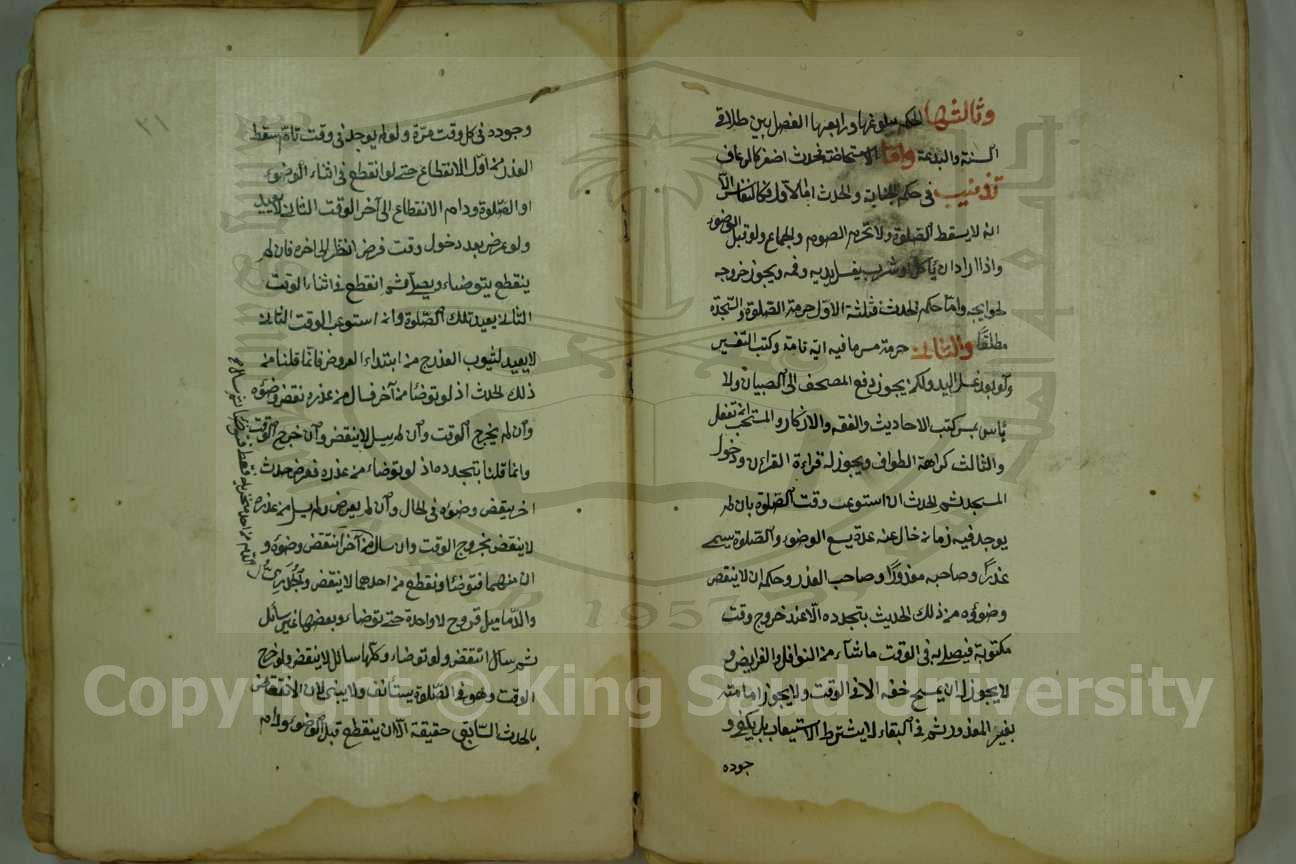 وثالثها الحكم ببلوغها ورابعها الفصل بين طلاقي
السنة والبدعة واما الاستحاضة فحدث اصغر كالرعاف
تذنيب في حكم الجنابة والحدث اما الاول فكالنفاس الا
انه لا يسقط الصلوة ولا تحريم الصوم والجماع ولو قبل الوضوء
واذا اراد ان يأكل او شرب يغسل يديه وفمه ويجوز خروجه
لحوايجه واما حكم الحدث فثلثة الاول حرمة الصلوة والسجدة
مطلقا والثاني حرمة مس ما فيه اية تامة وكتب التفسير
ولو بعد غسل اليد ولكن يجوز دفع المصحف الى الصبيان ولا
بأس بمس كتب الاحاديث والفقه والاذكار والمستحب انه تفعل
والثالث كراهة الطواف ويجوز له قراءة القراءن ودخول
المسجد ثم الحدث ان استوعب وقت الصلوة بان لم
يوجد فيه زمان خال عنه عدة يسع الوضوء والصلوة يسمى
عذرا وصاحبه معذورا وصاحب العذر وحكمه ان لا ينقض
وضوؤه من ذلك الحديث بتجدده الا عند خروج وقت
مكتوبة فيصلي به في الوقت ما شاء من النوافل والفرايض و
لا يجوز له ان يمسح خفه الا في الوقت ولا يجوز امامته
بغير المعذور ثم في البقاء لا يشترط الاستيعاب بل يكفي و
جوده
٢١
وجوده في كل وقت مرة ولو لم يوجد في وقت تام سقط
العذر من اول الانقطاع حتى لو انقطع في اثناء الوضوء
او الصلوة ودام الانقطاع الى آخر الوقت الثاني يعيد
ولو عرض بعد دخول وقت فرض انتظر الى اخره فان لم
ينقطع يتوضاء ويصلي ثم انقطع في اثناء الوقت
الثاني يعيد تلك الصلوة وان استوعب الوقت الثاني
لا يعيد لثبوت العذر من ابتداء العروض فانما قلنا من
ذلك الحدث اذ لو توضأ من آخر فسال من عذره نقض وضوؤه
وان لم يخرج الوقت وان لم يسل لا ينقض وان خرج الوقت
وانما قلنا بتجدده اذ لو توضاء من عذره فعرض حدث
اخر ينقض وضوؤه في الحال وان لم يعرض ولم يسل من عذره
لا ينقض بخروج الوقت وان سال من آخر انتقض وضوؤه و
ان منهما فتوضأ وانقطع من احدهما لا ينقض والجدري
والدماميل قروح لا واحدة حتى توضاء وبعضها غير سائل
ثم سال انتقض ولو توضاء وكلها سائل لا ينقض ولو خرج
الوقت وهو في الصلوة يستأنف ولا يبني لان الانتقاض
بالحدث السابق حقيقة الا ان ينقطع قبل الوضوء ودام
Copyright © King Saud University
1957